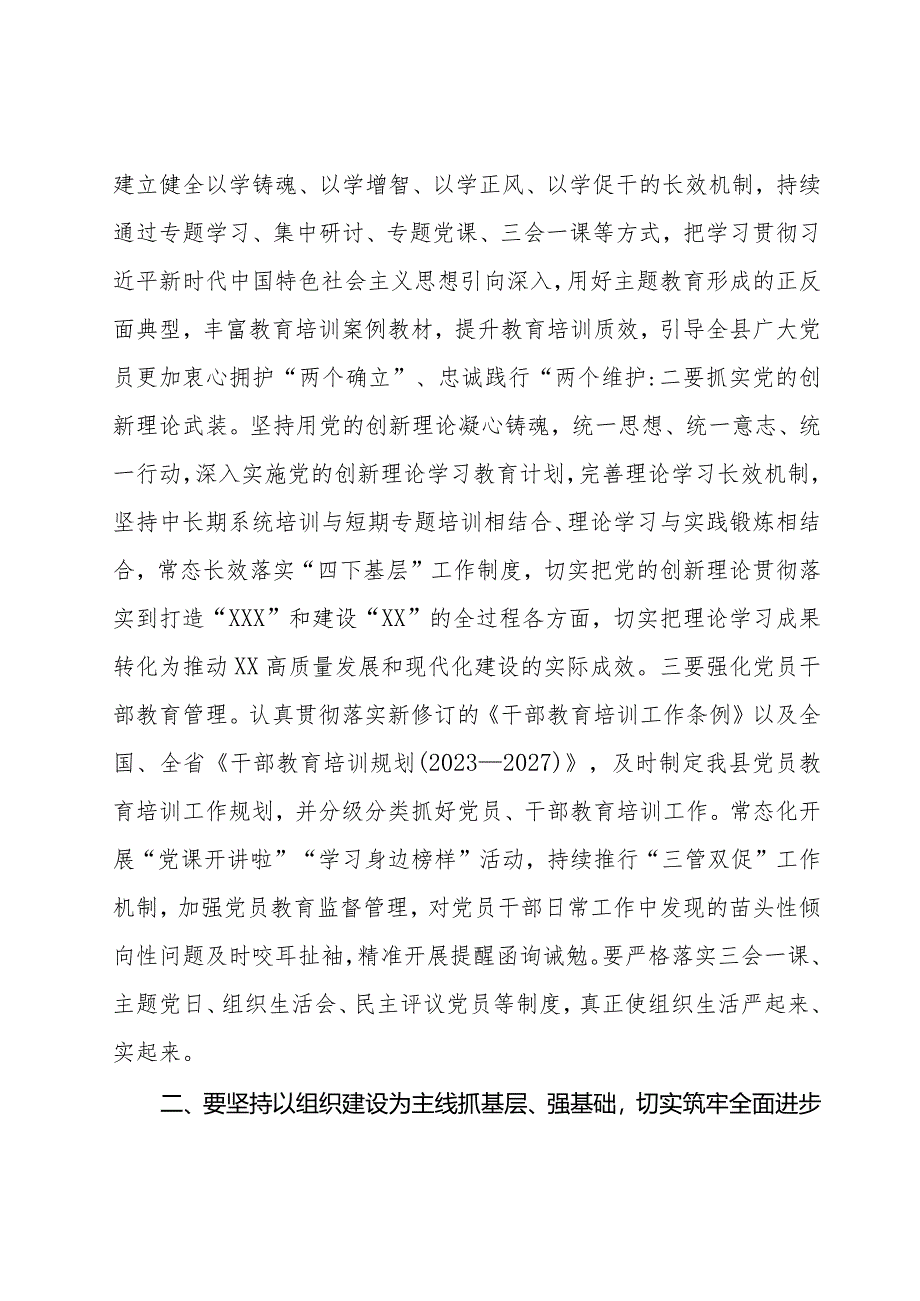 建立健全以学铸魂、以学增智、以学正风、以学促干的长效机制，持续
通过专题学习、集中研讨、专题党课、三会一课等方式，把学习贯彻习
近平新时代中国特色社会主义思想引向深入，用好主题教育形成的正反
面典型，丰富教育培训案例教材，提升教育培训质效，引导全县广大党
员更加衷心拥护“两个确立”、忠诚践行“两个维护:二要抓实党的创
新理论武装。坚持用党的创新理论凝心铸魂，统一思想、统一意志、统
一行动，深入实施党的创新理论学习教育计划，完善理论学习长效机制，
坚持中长期系统培训与短期专题培训相结合、理论学习与实践锻炼相结
合，常态长效落实“四下基层”工作制度，切实把党的创新理论贯彻落
实到打造“XXX”和建设“XX”的全过程各方面，切实把理论学习成果
转化为推动 XX 高质量发展和现代化建设的实际成效。三要强化党员干
部教育管理。认真贯彻落实新修订的《干部教育培训工作条例》以及全
国、全省《干部教育培训规划(2023—2027)》，及时制定我县党员教
育培训工作规划，并分级分类抓好党员、干部教育培训工作。常态化开
展“党课开讲啦”“学习身边榜样”活动，持续推行“三管双促”工作
机制，加强党员教育监督管理，对党员干部日常工作中发现的苗头性倾
向性问题及时咬耳扯袖，精准开展提醒函询诫勉。要严格落实三会一课、
主题党日、组织生活会、民主评议党员等制度，真正使组织生活严起来、
实起来。
二、要坚持以组织建设为主线抓基层、强基础，切实筑牢全面进步